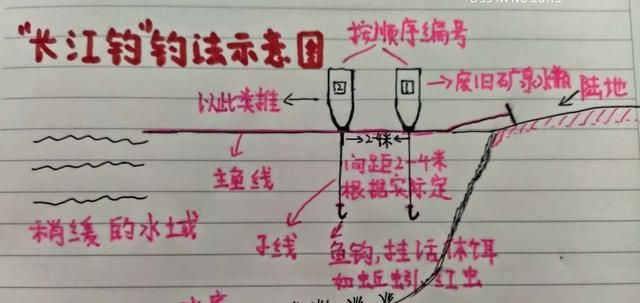 "长江钓"钓法示意图
按顺序编号
2
1
废旧矿泉水瓶
陆地
以此类推
2-4米
主鱼线
间距2-4米
根据实际定
稍缓的水域
子线
鱼钩,挂活体饵
如蚯蚓、红虫